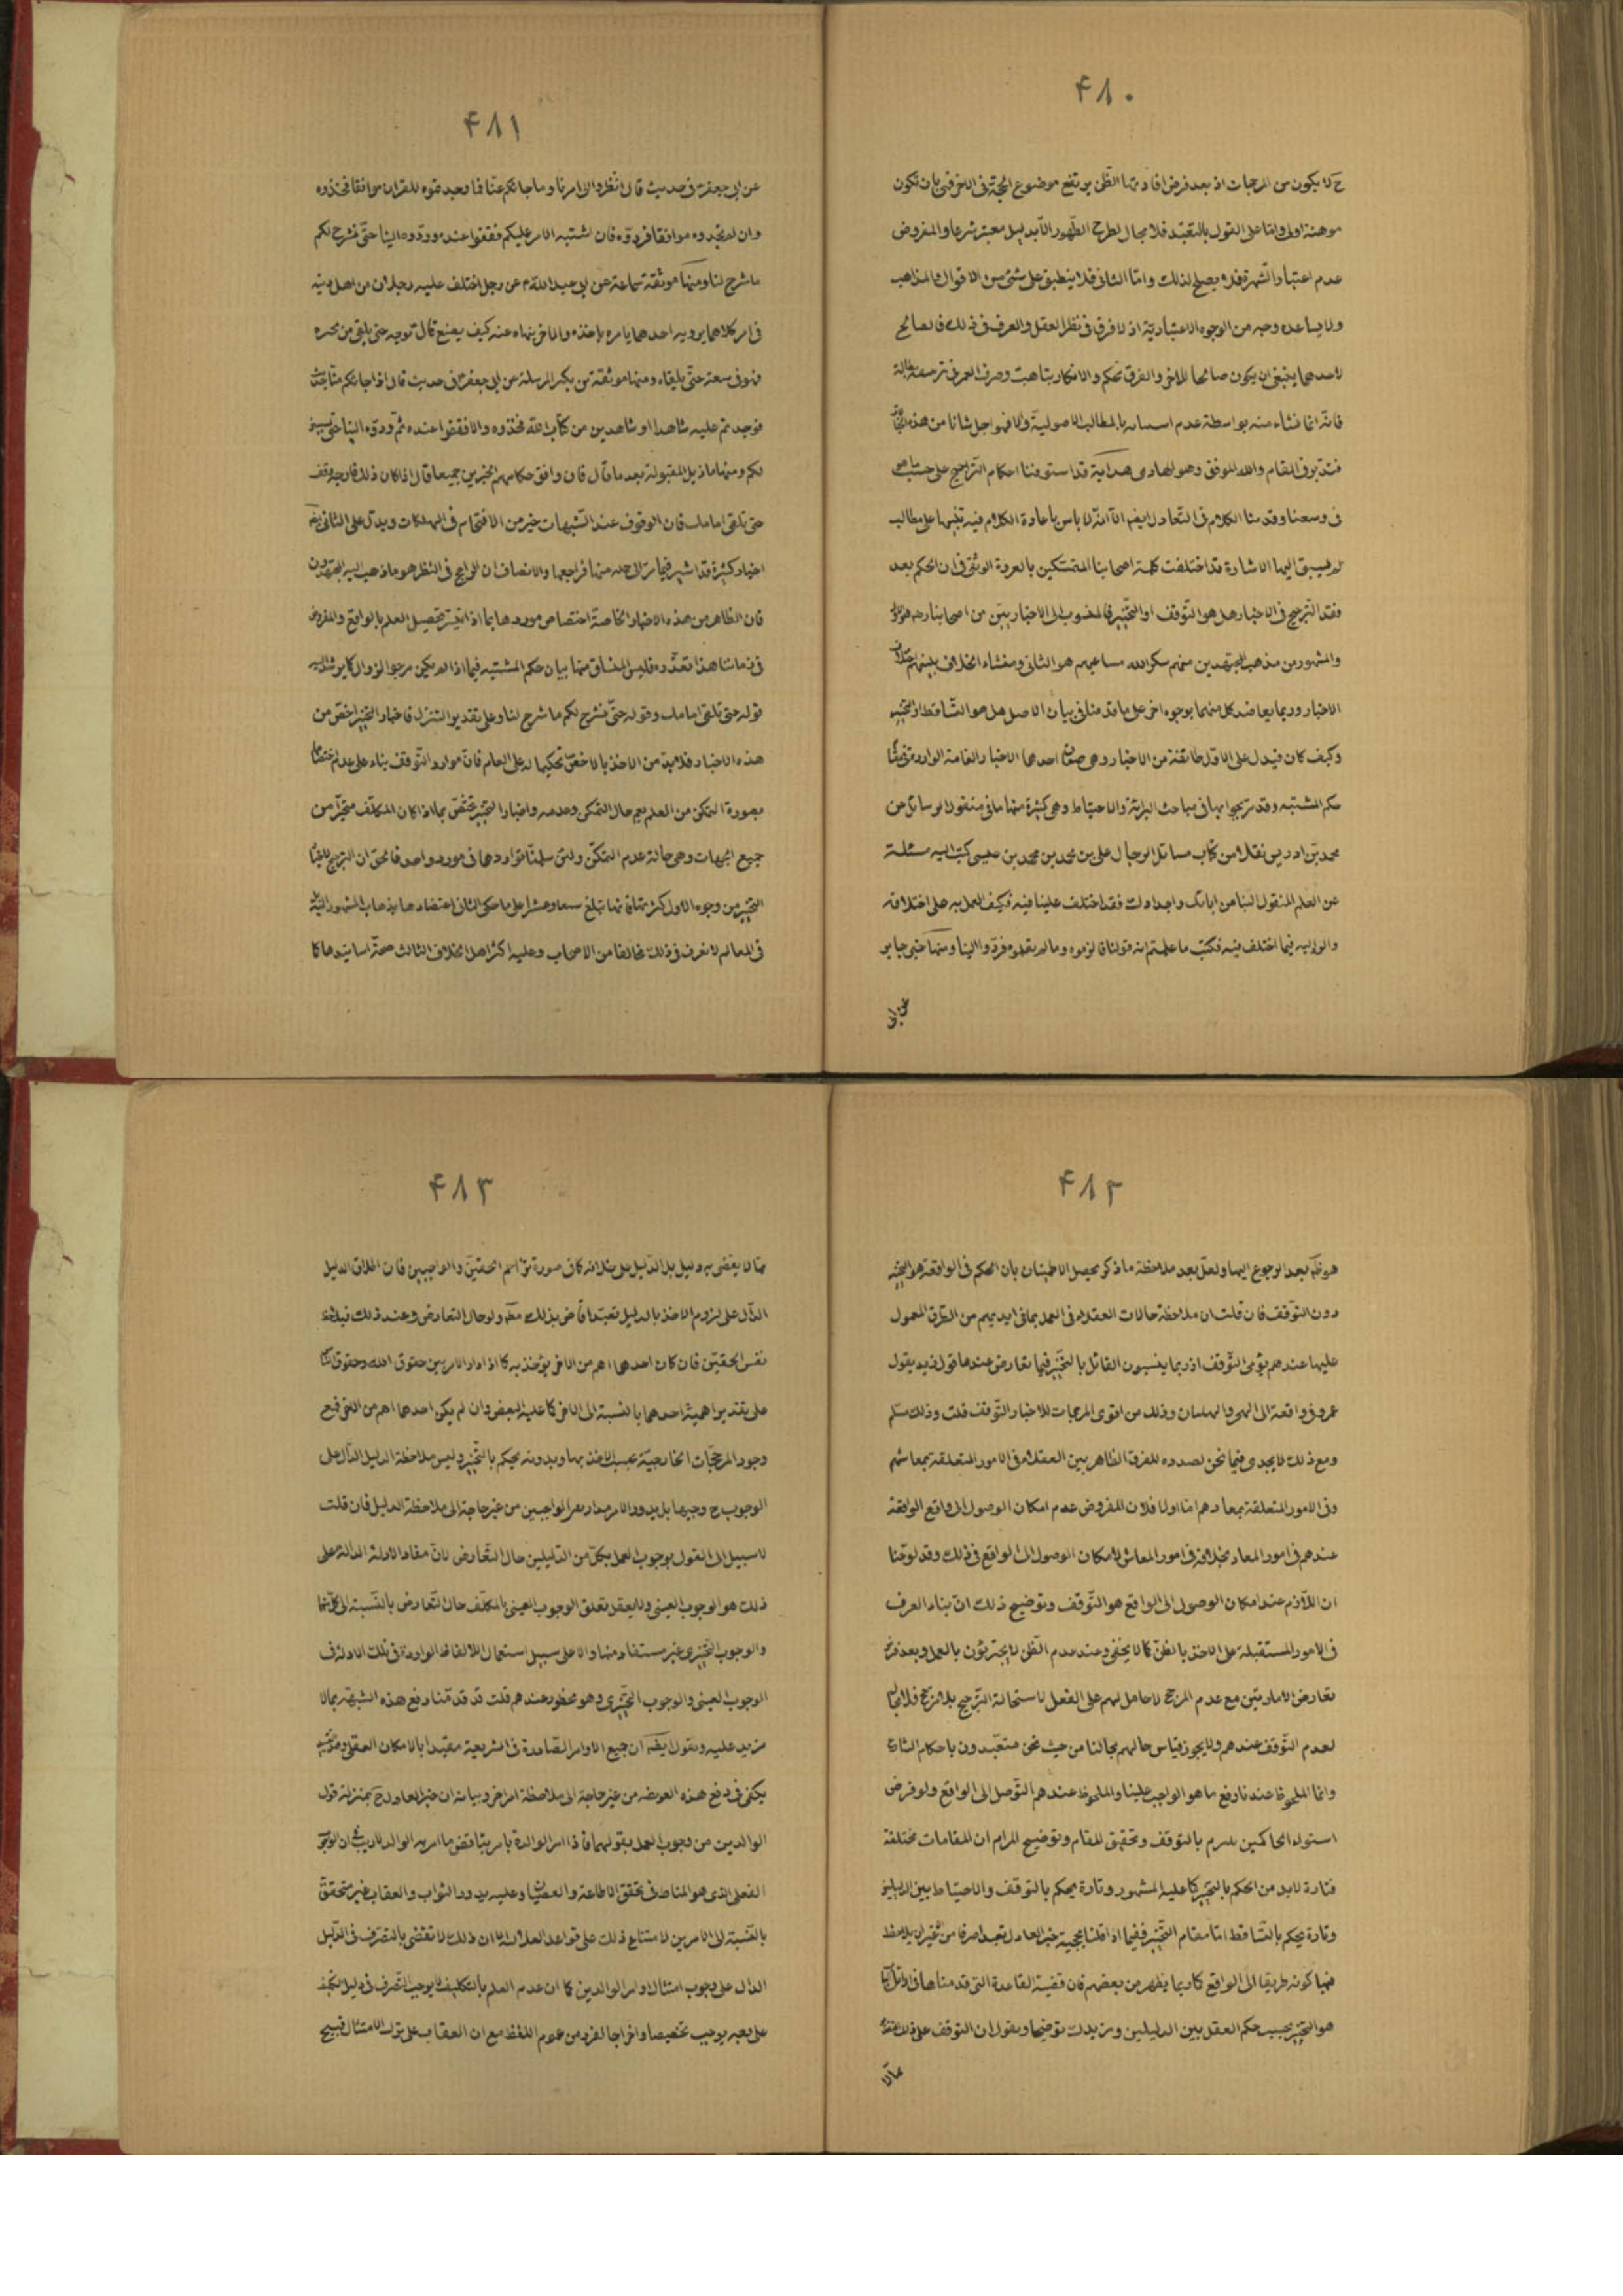 ۴۸۰
ح لا يكون من المرجحات اذ بعد فرض افادتها الظن يرتفع موضوع الحجة فى الاخر فهى بان تكون
موهنة اولى واما على القول بالتعبد فلا مجال لطرح الظهور الا بدليل معتبر شرعا والمفروض
عدم اعتبار الشهرة فلا يصلح لذلك واما الثانى فلا ينطبق على شئ من الاقوال والمذاهب
ولا يساعده وجه من الوجوه الاعتبارية اذ لا فرق فى نظر العقل والعرف فى ذلك فالصالح
لاحدهما ينبغى ان يكون صالحا للاخر والفرق تحكم والانكار بتاهت وصرف العمر فى
فانه انما نشاء منه بواسطة عدم بالمطالب الاصولية والا فهو اجل شانا من هذه
فتدبر فى المقام والله الموفق وهو الهادى هداية قد استوفينا احكام التراجيح على حسب ما هو
فى وسعنا وقدمنا الكلام فى التعادل ايضا الا انه لا باس باعادة الكلام فيه تنبيها على مطالب
لم يسبق اليها الاشارة قد اختلفت كلمة اصحابنا المتمسكين بالعروة الوثقى فى ان الحكم بعد
فقد الترجيح فى الاخبار هل هو التوقف او التخيير فالمنسوب الى الاخباريين من اصحابنا رحمهم الله هو الاول
والمشهور من مذهب المجتهدين منهم شكر الله مساعيهم هو الثانى ومنشاء الخلاف بينهم اختلاف
الاخبار وربما يعاضد كل منهما بوجوه اخر على ما قدمنا فى بيان الاصل هل هو التساقط او التخيير
وكيف كان فيدل على الاول طائفة من الاخبار وهى صنفان احدهما الاخبار العامة الواردة فى بيان
حكم المشتبه وقد تمر بجوابها فى مباحث البرائة والاحتياط وهى كثيرة منها ما فى منقول الوسائل عن
محمد بن ادريس نقلا من كتاب مسائل الرجال على بن محمد بن محمد بن عيسى كتب اليه مسئلة
عن العلم المنقول الينا من ابائك واجدادك فقد اختلف علينا فيه فكيف العمل به على اختلافه
والرد اليه فيما اختلف فيه فكتب ما علمتم انه قولنا فالزموه وما لم تعلموه فردوا الينا ومنها خبر جابر
عن ابى
۴۸۱
عن ابى جعفر ع فى حديث قال انظروا الى امرنا وما جائكم عنا فان وجدتموه للقران موافقا فخذوه
وان لم تجدوه موافقا فردوه فان اشتبه الامر عليكم فقفوا عنده وردوه الينا حتى نشرح لكم
ما شرح لنا ومنها موثقة سماعة عن ابى عبد الله ع عن رجل اختلف عليه رجلان من اهل دينه
فى امر كلاهما يرويه احدهما يامره باخذه والاخر ينهاه عنه كيف يصنع قال يرجه حتى يلقى من يخبره
فهو فى سعة حتى يلقاه ومنها موثقة بن بكير المرسلة عن ابى جعفر ع فى حديث قال اذا جائكم عنا حديث
فوجدتم عليه شاهدا او شاهدين من كتاب الله فخذوه والا فقفوا عنده ثم ردوه الينا حتى يستبين
لكم ومنها ما ذيل المقبولة بعد ما قال فان وافق حكامهم الخبرين جميعا قال اذا كان ذلك فارجه وقف
حتى تلقى امامك فان الوقوف عند الشبهات خير من الاقتحام فى الهلكات ويدل على الثانى ايضا
اخبار كثيرة قد اشير فيما مر الى جملة منها فراجعها والانصاف ان الراجح فى النظر هو ما ذهب اليه المجتهدون
فان الظاهر من هذه الاخبار الخاصة اختصاص موردها بما اذا تيسر تحصيل العلم بالواقع والمفروض
فى زماننا هذا تعذره فليس المساق منها بيان حكم المشتبه فيما اذا لم يكن مرجوا لزوال كما يرشد اليه
قوله حتى تلقى امامك وقوله حتى نشرح لكم ما شرح لنا وعلى تقدير التنزل فاخبار التخيير اخص من
هذه الاخبار فلا بد من الاخذ بالاخص تحكيما له على العام فان موارد التوقف بناء على عدم اختصاصها
بصورة التمكن من العلم يعم حال التمكن وعدمه واخبار التخيير تختص بما اذا كان المكلف متحيرا من
جميع الجهات وهى حالة عدم التمكن ولئن سلمنا تواردها فى مورد واحد فالحق ان الترجيح لاخبار
التخيير من وجوه الاول كثرتها فانها تبلغ سبعا وعشرا على ما حكى الثانى اعتضادها بذهاب المشهور اليه
فى المعالم لا نعرف فى ذلك مخالفا من الاصحاب وعليه اكثر اهل الخلاف الثالث صحة اسانيدها كما
۴۸۲
هو ظاهر بعد الرجوع اليها ولعل بعد ملاحظة ما ذكر يحصل الاطمينان بان الحكم فى الواقعة هو التخيير
دون التوقف فان قلت ان ملاحظة حالات العقلاء فى العمل بما فى ايديهم من الطرق المعمول
عليها عندهم يؤمى التوقف اذ ربما ينسبون القائل بالتخيير فيما تعارض عندها قول زيد بقول
عمرو فى واقعة الى الهجر والهذيان وذلك من اقوى المرجحات للاخبار التوقف قلت وذلك مسلم
ومع ذلك لا يجدى فيما نحن بصدده للفرق الظاهر بين العقلاء فى الامور المتعلقة بمعاشهم
وفى الامور المتعلقة بمعادهم اما اولا فلان المفروض عدم امكان الوصول الى واقع الواقعة
عندهم فى امور المعاد بخلافه فى امور المعاش لامكان الوصول الى الواقع فى ذلك وقد لوحنا
ان اللازم عند امكان الوصول الى الواقع هو التوقف وتوضيح ذلك ان بناء العرف
فى الامور المستقبلة على الاخذ بالظن كما لا يخفى وعند عدم الظن لا يجترئون بالعمل وبعد فرض
تعارض الامارتين مع عدم المرجح لا حامل لهم على الفعل لاستحالة الترجيح بلا مرجح فلا مجال
لعدم التوقف عندهم ولا يجوز قياس حالهم بحالنا من حيث نحن متعبدون باحكام الشارع
وانما الملحوظ عندنا رفع ما هو الواجب علينا والملحوظ عندهم التوصل الى الواقع ولو فرض
استواء الحاكمين نلتزم بالتوقف وتحقيق المقام وتوضيح المرام ان المقامات مختلفة
فتارة لا بد من الحكم بالتخيير كما عليه المشهور وتارة يحكم بالتوقف والاحتياط بين الدليلين
وتارة يحكم بالتساقط اما مقام التخيير ففيما اذا قلنا بحجية خبر العادل تعبدا صرفا من غير ان يلاحظ
فيها كونه طريقا الى الواقع كما ربما يظهر من بعضهم فان قضية القاعدة التى قدمناها فى اوائل الباب
هو التخيير بحسب حكم العقل بين الدليلين ونزيدك توضيحا ونقول ان التوقف على ذلك التقدير
مما لا
۴۸۳
مما لا يقضى به دليل بل الدليل على خلافه كان صورة تزاحم الحقين والواجبين فان اطلاق الدليل
الدال على لزوم الاخذ بالدليل تعبدا قاض بذلك مطلقا ولو حال التعارض وعند ذلك فيلاحظ
نفس الحقين فان كان احدهما اهم من الاخر يؤخذ به كما اذا دار الامر بين حقوق الله وحقوق الناس
على تقدير اهمية احدهما بالنسبة الى الاخر كما عليه البعض وان لم يكن احدهما اهم من الاخر فمع
وجود المرجحات الخارجية يجب الاخذ بها وبدونه يحكم بالتخيير وليس ملاحظة الدليل الدال على
الوجوب ح وجيها بل يدور الامر مدار نفس الواجبين من غير حاجة الى ملاحظة الدليل فان قلت
لا سبيل الى القول بوجوب العمل بكل من الدليلين حال التعارض لان مفاد الادلة الدالة على
ذلك هو الوجوب العينى ولا يعقل تعلق الوجوب العينى بالمكلف حال التعارض بالنسبة الى كل منهما
والوجوب التخييرى غير مستفاد منها والا على سبيل استعمال اللالفاظ الواردة فى تلك الادلة فى
الوجوب العينى والوجوب التخييرى وهو محظور عندهم قلت قد قدمنا رفع هذه الشبهة بما لا
مزيد عليه ونقول ايضا ان جميع الاوامر الصادرة فى الشريعة مقيد بالامكان العقلى
يكفى فى دفع هذه العويصة من غير حاجة الى ملاحظة امر اخر وبيانه ان خبر العادل ح بمنزلة قول
الوالدين من وجوب العمل بقولهما فاذا امر الوالدة بامر يناقض ما امر به الوالد لا ريب فى ان الوجوب
الفعلى الذى هو المناط فى تحقق الاطاعة والعصيان وعليه يدور الثواب والعقاب غير متحقق
بالنسبة الى الامرين لامتناع ذلك على قواعد العدلية الا ان ذلك لا تقضى بالتصرف فى الدليل
الدال على وجوب امتثال اوامر الوالدين كما ان عدم العلم بالتكليف لا يوجب التصرف فى دليل التكليف
على وجه يوجب تخصيصا واخراجا لفرد من عموم اللفظ مع ان العقاب على ترك الامتثال قبيح